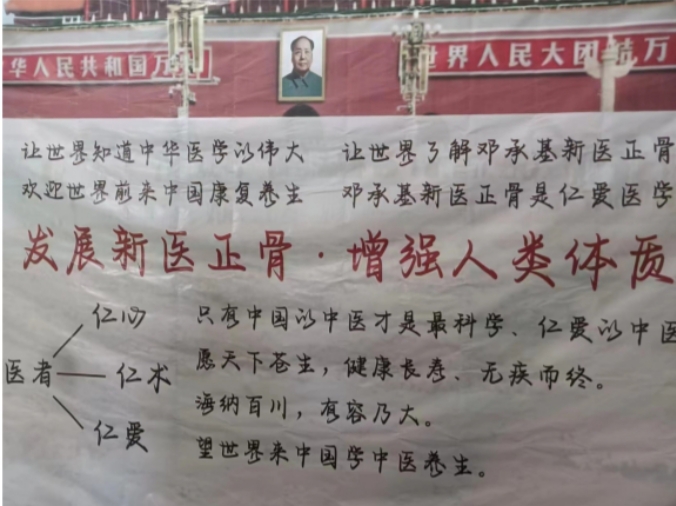 华人民共和国万
世界人民大团结万
让世界知道中华医学的伟大 让世界了解邓承基新医正骨
欢迎世界前来中国康复养生 邓承基新医正骨是仁爱医学
发展新医正骨·增强人类体质
医者
仁心
仁术
仁爱
只有中国的中医才是最科学、仁爱的中医
愿天下苍生，健康长寿、无疾而终。
海纳百川，有容乃大。
望世界来中国学中医养生。